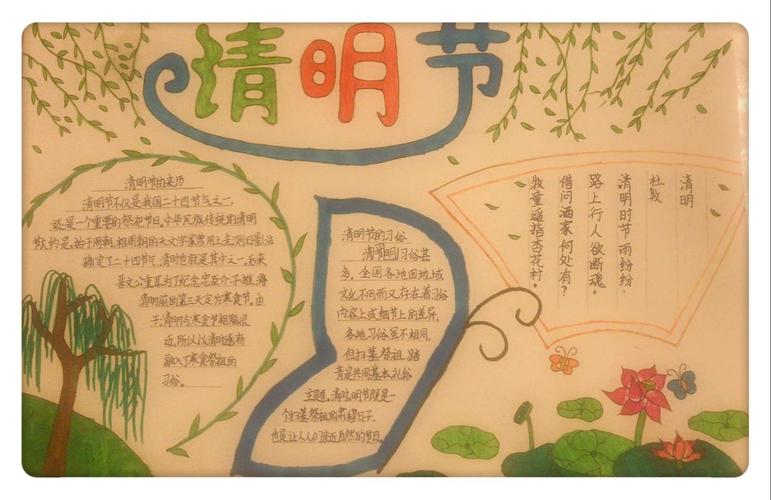 清明节
清明节的来历
清明节不仅是我国二十四节气之一
还是一个重要的祭祀节日。中华民族传统的清明
节大约是始于周朝,相周朝的天文学家曾用土圭测日影法
确定了二十四节气,清明也就是其中之一。后来
晋文公重耳为了纪念忠臣介子推,将
清明前的第三天定为寒食节。由
于清明与寒食节相隔很
近,所以以清明逐渐
融入了寒食祭祖的
习俗。
清明节的习俗
清明节习俗甚
多,全国各地因地域
文化不同而又存在着习俗
内容上或细节上的差异,
各地习俗虽不相同,
但扫墓祭祖、踏
青是共同基本礼俗
主题。清明节既是一
个扫墓祭祖的肃穆日子,
也是让人人们接近自然的节日。
清明
杜牧
清明时节雨纷纷,
路上行人欲断魂。
借问酒家何处有?
牧童遥指杏花村。